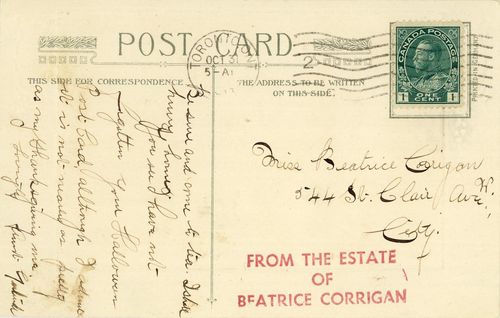 POST CARD
TORONTO
OCT 31
5-A
2
CANADA POSTAGE
1 ONE CENT 1
THIS SIDE FOR CORRESPONDENCE
THE ADDRESS TO BE WRITTEN
ON THIS SIDE.
Be sure and come to tea. I shall
hurry home
You see I have not
forgotten your Hallowe'en
Post Card, although I
it is not nearly as pretty
as my Thanksgiving one
Lovingly Aunt
Miss Beatrice Corrigan
544 St. Clair Ave W.
City.
FROM THE ESTATE
OF
BEATRICE CORRIGAN